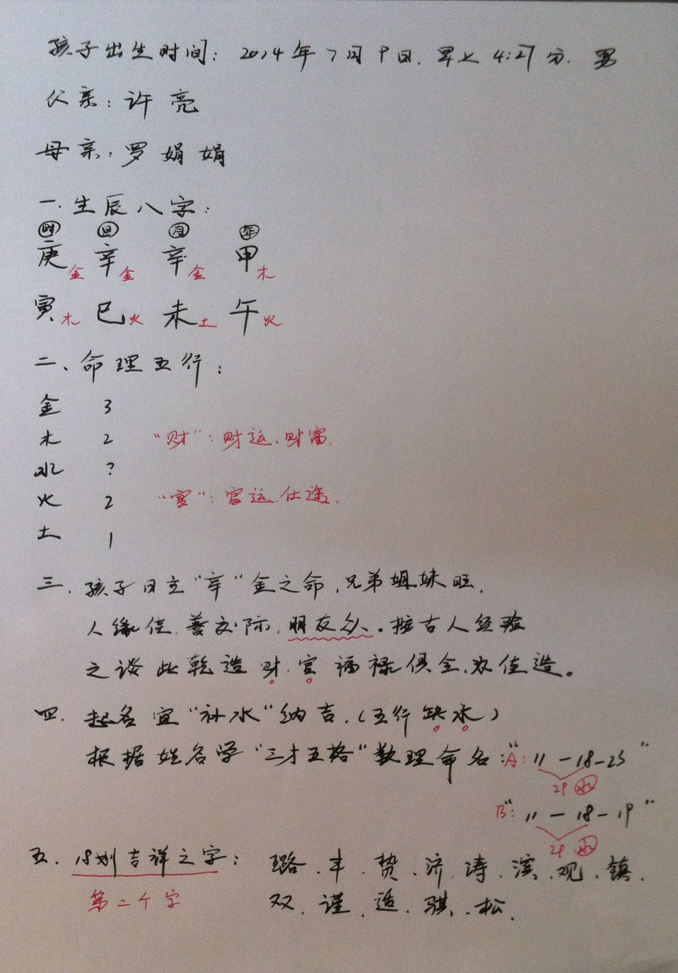 孩子出生时间: 2014年7月9日. 早上 4:27分. 男
父亲: 许亮
母亲: 罗娟娟
一. 生辰八字:
时 日 月 年
庚金 辛金 辛金 甲木
寅木 巳火 未土 午火
二、命理五行:
金 3
木 2 "财": 财运、财富.
水 ?
火 2 "官": 官运、仕途.
土 1
三. 孩子日立"辛"金之命, 兄弟姐妹旺,
人缘佳. 善交际, 朋友众。按古人经验
之谈此乾造财.官福禄俱全, 为佳造。
四. 起名宜"补水"纳吉.(五行缺水)
根据姓名学"三才五格"数理命名: A: "11-18-23"
29 水
B: "11-18-19"
29 水
五. 18划吉祥之字: 璐.丰.贽.济.涛.滨.观.镇.
第二个字 双.谨.适.骐.松.